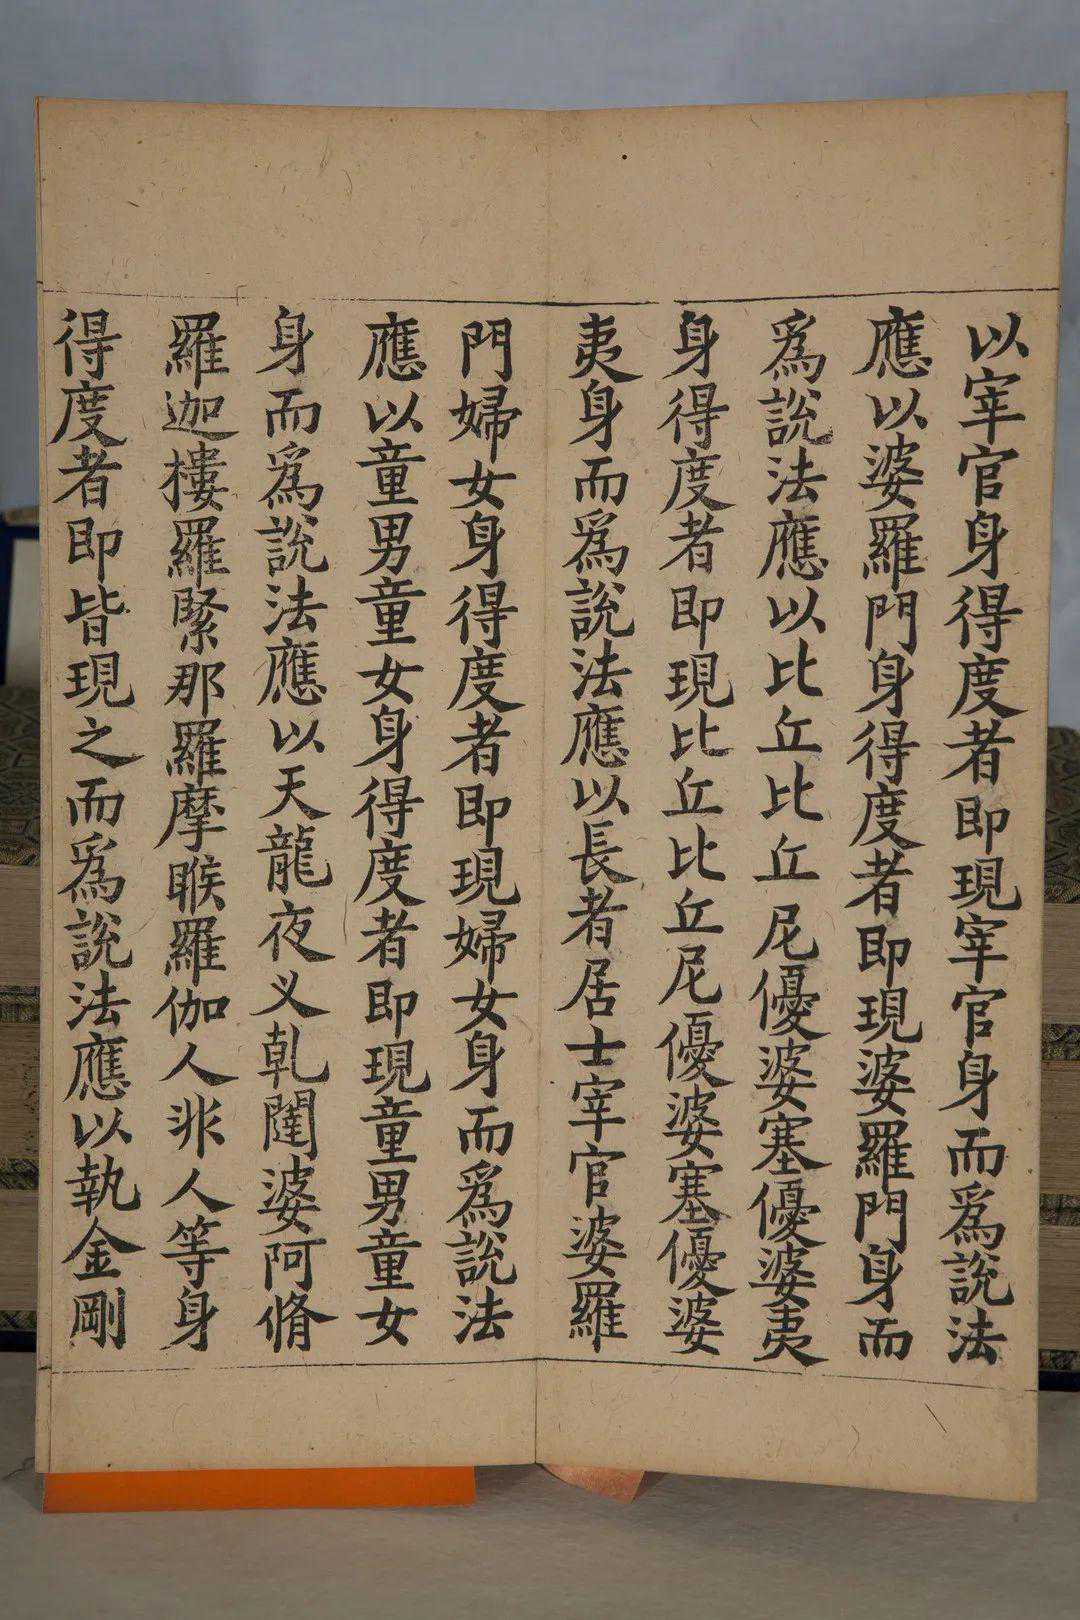 以宰官身得度者即現宰官身而爲說法
應以婆羅門身得度者即現婆羅門身而
爲說法應以比丘比丘尼優婆塞優婆夷
身得度者即現比丘比丘尼優婆塞優婆
夷身而爲說法應以長者居士宰官婆羅
門婦女身得度者即現婦女身而爲說法
應以童男童女身得度者即現童男童女
身而爲說法應以天龍夜乂乹闥婆阿脩
羅迦樓羅緊那羅摩睺羅伽人非人等身
得度者即皆現之而爲說法應以執金剛